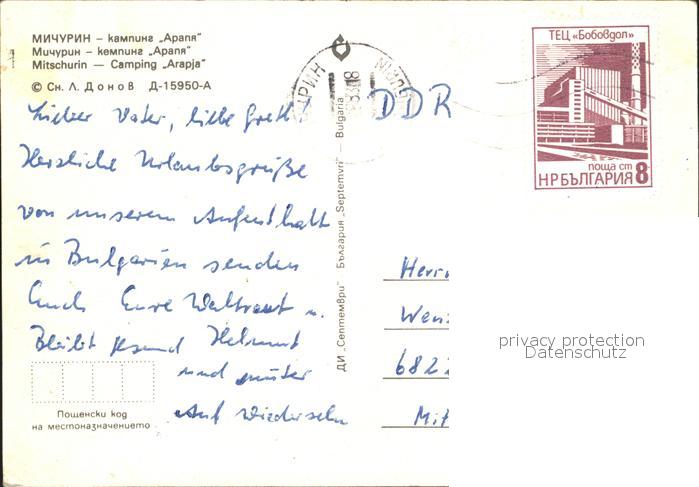 МИЧУРИН – кампинг „Арапя"
Мичурин – кемпинг „Арапя"
Mitschurin – Camping „Arapja"
© Сн. Л. Донов Д-15950-А
Lieber Vater, liebe Grethl
Herzliche Urlaubsgrüße
von unserem Aufenthalt
in Bulgarien senden
Euch Eure Waltraut u.
Helmut
Bleibt gesund
und munter
Auf Wiedersehn
Пощенски код
на местоназначението
ДИ „Септември" България „Septemvri" Bulgaria
ТЕЦ «Бобовдол»
поща ст 8
НРБЪЛГАРИЯ
DDR
Herrn
6822
privacy protection
Datenschutz